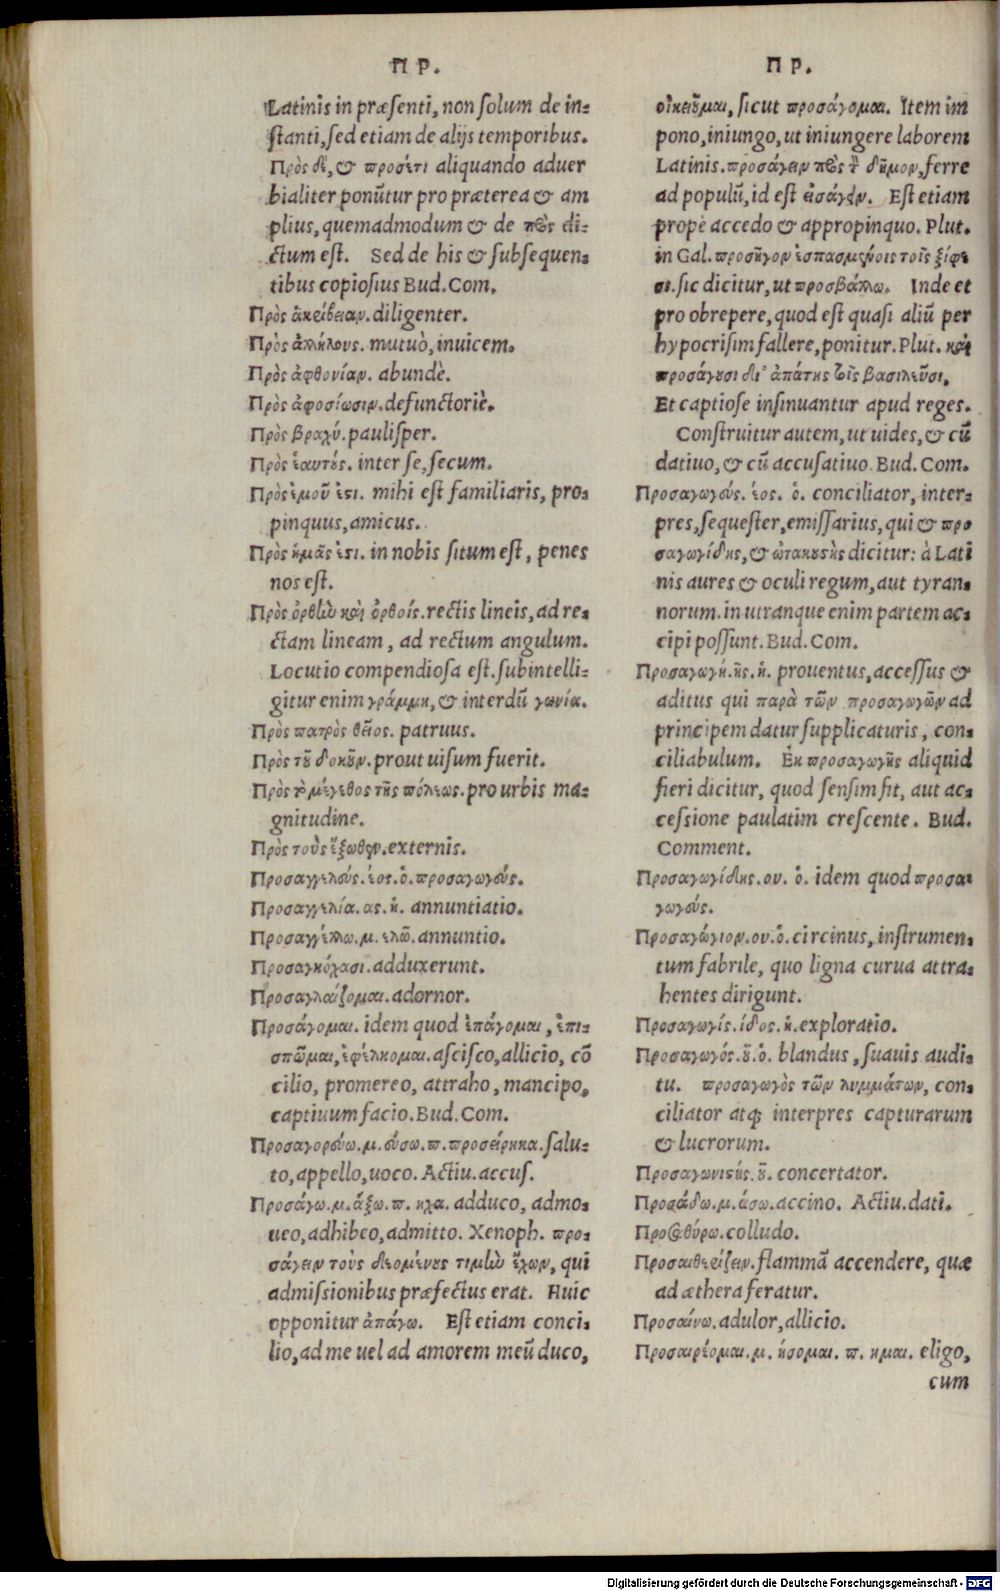 ΠΡ.
Latinis in præsenti, non solum de in-
stanti, sed etiam de alijs temporibus.
Πρὸς δὲ, & προσέτι aliquando aduer
bialiter ponūtur pro præterea & am
plius, quemadmodum & de πρὸς di-
ctum est. Sed de his & subsequen-
tibus copiosius Bud. Com.
Πρὸς ἀκρίβειαν. diligenter.
Πρὸς ἀλλήλους. mutuò, inuicem.
Πρὸς ἀφθονίαν. abundè.
Πρὸς ἀφοσίωσιν. defunctoriè.
Πρὸς βραχύ. paulisper.
Πρὸς ἑαυτούς. inter se, secum.
Πρὸς ἐμοῦ ἐστι. mihi est familiaris, pro-
pinquus, amicus.
Πρὸς ἡμᾶς ἐστι. in nobis situm est, penes
nos est.
Πρὸς ὀρθὴν καὶ ὀρθοίς. rectis lineis, ad re-
ctam lineam, ad rectum angulum.
Locutio compendiosa est. subintelli-
gitur enim γράμμη, & interdū γωνία.
Πρὸς πατρὸς θεῖος. patruus.
Πρὸς τὸ δοκοῦν. prout uisum fuerit.
Πρὸς τὸ μέγεθος τῆς πόλεως. pro urbis ma-
gnitudine.
Πρὸς τοὺς ἔξωθεν. externis.
Προσαγγελεύς. έος. ὁ. προσαγωγεύς.
Προσαγγελία. ας. ἡ. annuntiatio.
Προσαγγέλλω. μ. ελῶ. annuntio.
Προσαγηόχασι. adduxerunt.
Προσαγλαΐζομαι. adornor.
Προσάγομαι. idem quod ἐπάγομαι, ἐπι-
σπῶμαι, ἐφέλκομαι. ascisco, allicio, cō
cilio, promereo, attraho, mancipo,
captiuum facio. Bud. Com.
Προσαγορεύω. μ. εύσω. π. προσείρηκα. salu-
to, appello, uoco. Actiu. accus.
Προσάγω. μ. άξω. π. ηχα. adduco, admo-
ueo, adhibeo, admitto. Xenoph. προ-
σάγειν τοὺς δεομένους τιμὴν ἔχων, qui
admissionibus præfectus erat. Huic
opponitur ἀπάγω. Est etiam conci-
lio, ad me uel ad amorem meū duco,
ΠΡ.
οἰκειοῦμαι, sicut προσάγομαι. Item im
pono, iniungo, ut iniungere laborem
Latinis. προσάγειν πρὸς τὸν δῆμον, ferre
ad populū, id est εἰσάγειν. Est etiam
propè accedo & appropinquo. Plut.
in Gal. προσῆγον ἐσπασμένοις τοῖς ξίφε
σι. sic dicitur, ut προσβάλλω. Inde et
pro obrepere, quod est quasi aliū per
hypocrisim fallere, ponitur. Plut. καὶ
προσάγουσι δι' ἀπάτης τοῖς βασιλεῦσι,
Et captiose insinuantur apud reges.
Construitur autem, ut uides, & cū
datiuo, & cū accusatiuo. Bud. Com.
Προσαγωγεύς. έος. ὁ. conciliator, inter-
pres, sequester, emissarius, qui & προ
σαγωγίδης, & ὠτακουστὴς dicitur: à Lati
nis aures & oculi regum, aut tyran-
norum. in utranque enim partem ac-
cipi possunt. Bud. Com.
Προσαγωγή. ῆς. ἡ. prouentus, accessus &
aditus qui παρὰ τῶν προσαγωγῶν ad
principem datur supplicaturis, con-
ciliabulum. Ἐκ προσαγωγῆς aliquid
fieri dicitur, quod sensim fit, aut ac-
cessione paulatim crescente. Bud.
Comment.
Προσαγωγίδης. ου. ὁ. idem quod προσα-
γωγεύς.
Προσαγώγιον. ου. ὁ. circinus, instrumen-
tum fabrile, quo ligna curua attra-
hentes dirigunt.
Προσαγωγίς. ίδος. ἡ. exploratio.
Προσαγωγός. οῦ. ὁ. blandus, suauis audi-
tu. προσαγωγὸς τῶν λυμμάτων, con-
ciliator atq; interpres capturarum
& lucrorum.
Προσαγωνιστής. οῦ. concertator.
Προσάδω. μ. άσω. accino. Actiu. dati.
Προσαθύρω. colludo.
Προσαιθερίζειν. flammā accendere, quæ
ad æthera feratur.
Προσαίνω. adulor, allicio.
Προσαιρέομαι. μ. ήσομαι. π. ημαι. eligo,
cum
Digitalisierung gefördert durch die Deutsche Forschungsgemeinschaft - DFG